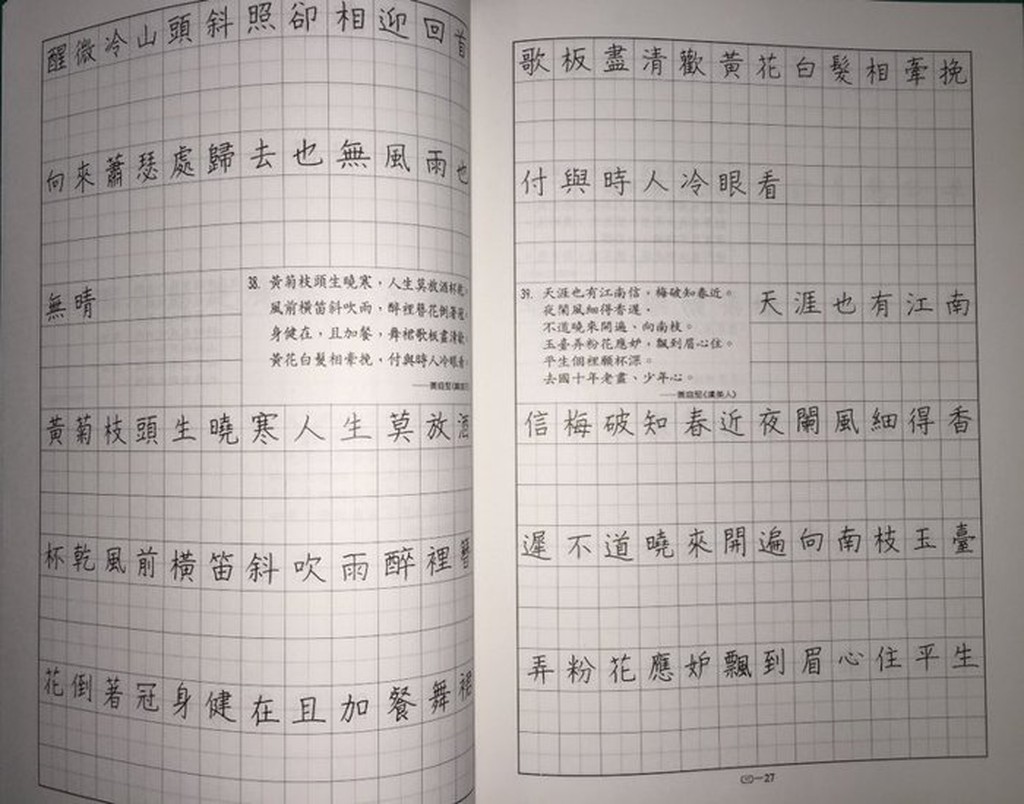 醒微冷山頭斜照卻相迎回首
向來蕭瑟處歸去也無風雨也
無晴
38. 黃菊枝頭生曉寒,人生莫放酒杯乾。
風前橫笛斜吹雨,醉裡簪花倒著冠。
身健在,且加餐,舞裙歌板盡清歡。
黃花白髮相牽挽,付與時人冷眼看。
黃菊枝頭生曉寒人生莫放酒
杯乾風前橫笛斜吹雨醉裡簪
花倒著冠身健在且加餐舞裙
歌板盡清歡黃花白髮相牽挽
付與時人冷眼看
39. 天涯也有江南信,梅破知春近。
夜闌風細得香遲,
不道曉來開遍、向南枝。
玉臺弄粉花應妒,飄到眉心住。
平生個裡願杯深。
去國十年老盡、少年心。
——黃庭堅《虞美人》
天涯也有江南
信梅破知春近夜闌風細得香
遲不道曉來開遍向南枝玉臺
弄粉花應妒飄到眉心住平生
四—27